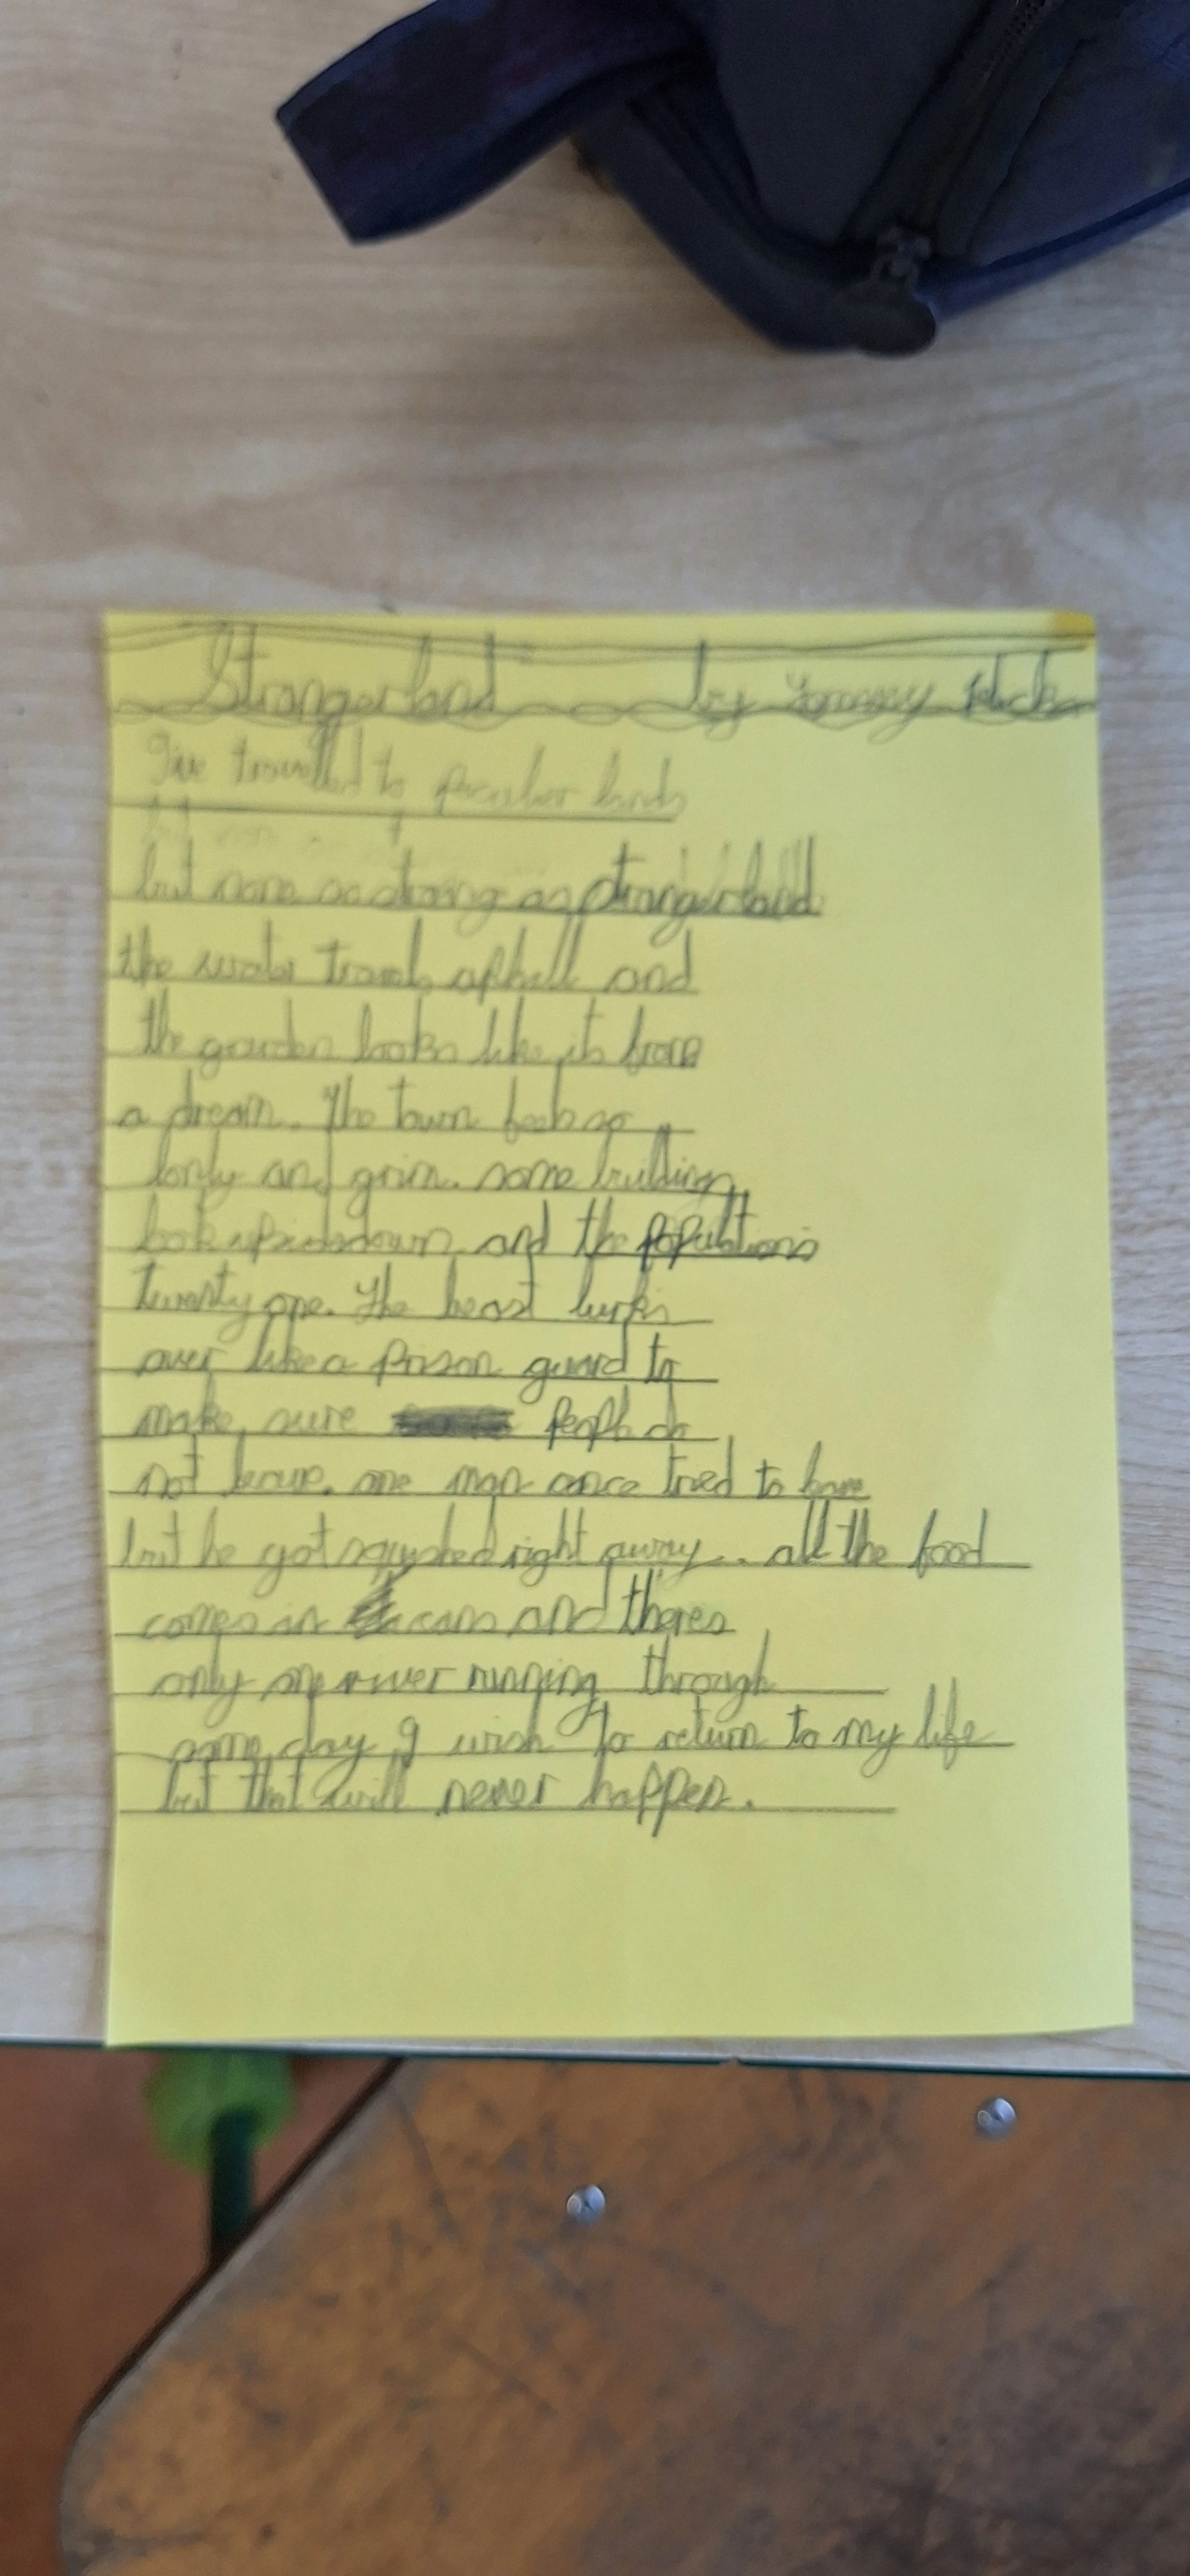 Strangerland by
I've travelled to peculiar lands
but none as strang as strangerland
the water travels uphill and
the garden looks like its from
a dream. The town feels so
lonly and grim. some buildings
look upsidedown and the populations
twenty one. The beast lurks
over like a prison guard to
make sure people do
not leave. one man once tried to leave
but he got squashed right away... all the food
comes in cans and theres
only one river running through
some day I wish to return to my life
but that will never happen.